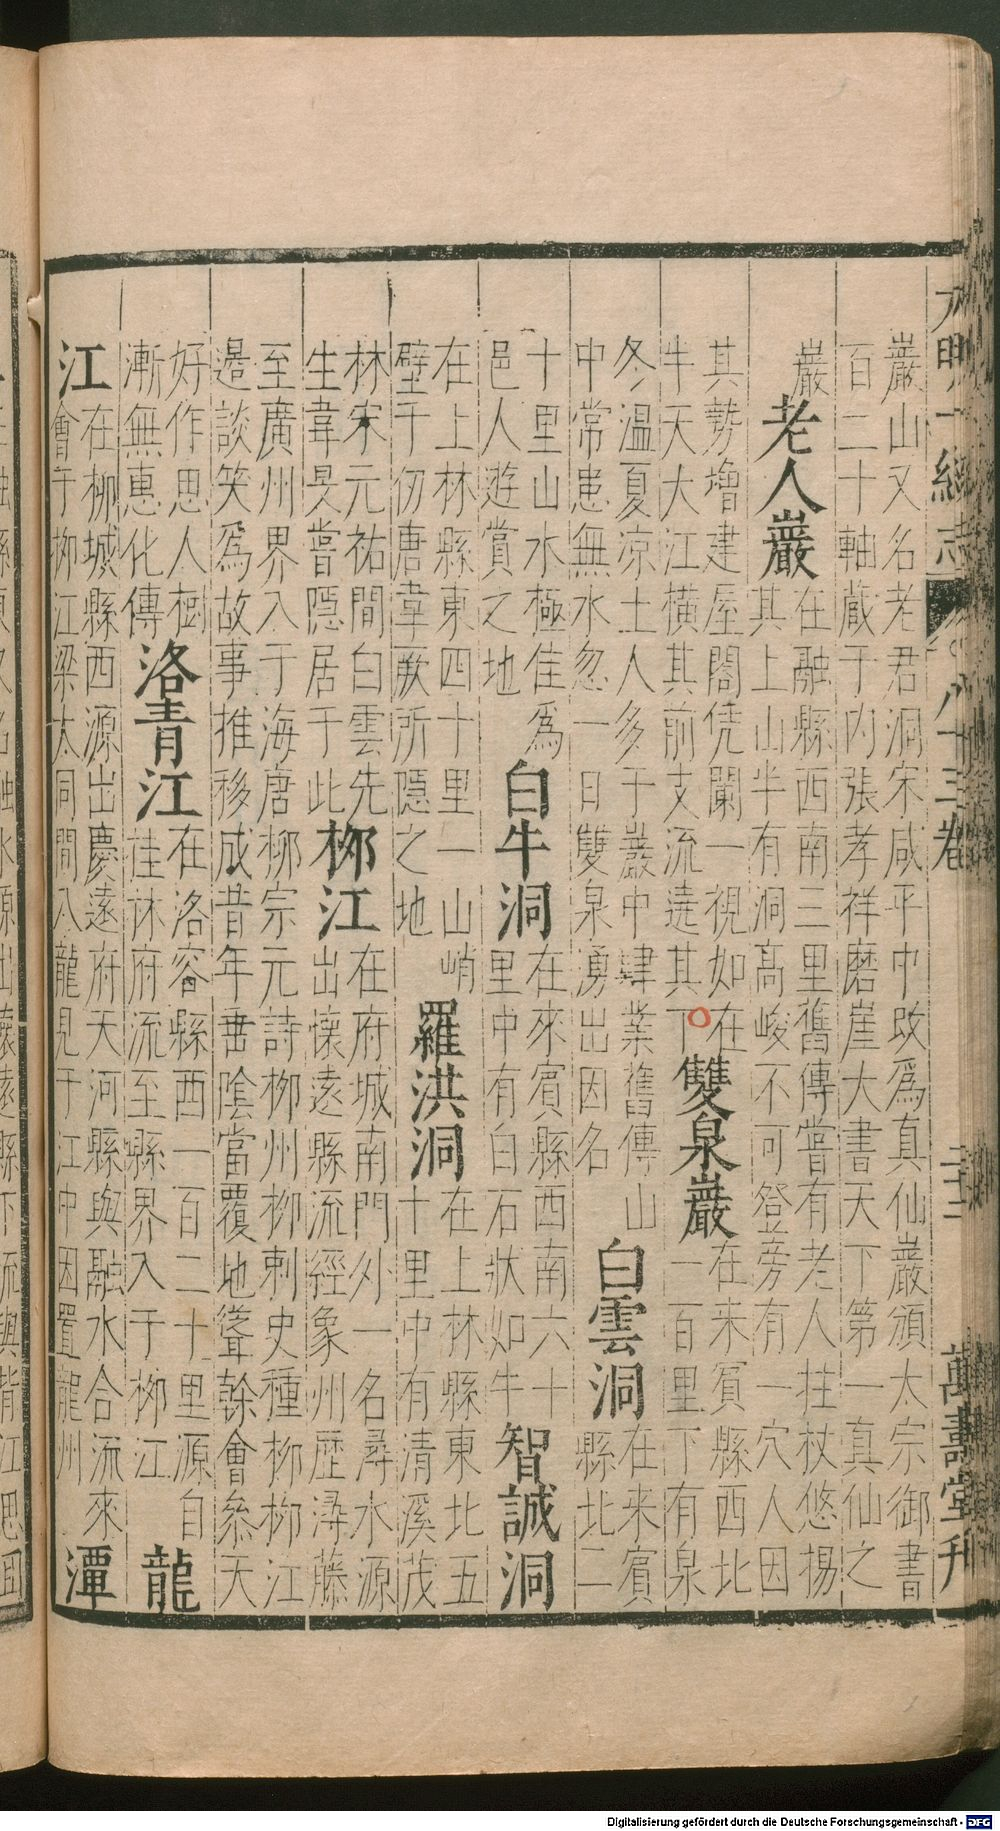 大明一統志 卷之八十三卷 二十二 萬壽堂刋
巖山又名老君洞宋咸平中改爲真仙巖頒太宗御書
百二十軸藏于内張孝祥磨崖大書天下第一真仙之
巖
老人巖
在融縣西南三里舊傳嘗有老人拄杖悠揚
其上山半有洞高峻不可登旁有一穴人因
其勢增建屋閣凭闌一視如在
牛天大江橫其前支流遶其下
雙泉巖
在来賓縣西北
一百里下有泉
冬温夏凉土人多于巖中肄業舊傳山
中常患無水忽一日雙泉湧出因名
白雲洞
在来賓
縣北二
十里山水極佳爲
邑人遊賞之地
白牛洞
在來賓縣西南六十
里中有白石狀如牛
智誠洞
在上林縣東四十里一山峭
壁千仞唐韋厥所隱之地
羅洪洞
在上林縣東北五
十里中有清溪茂
林宋元祐間白雲先
生韋旻嘗隱居于此
柳江
在府城南門外一名潯水源
出懷遠縣流經象州歷潯藤
至廣州界入于海唐柳宗元詩柳州柳刺史種柳柳江
邊談笑爲故事推移成昔年垂陰當覆地聳幹會叅天
好作思人樹
漸無惠化傳
洛青江
在洛容縣西一百二十里源自
桂林府流至縣界入于柳江
龍
江
在柳城縣西源出慶遠府天河縣與融水合流來
會于柳江梁大同間八龍見于江中因置龍州
潭
Digitalisierung gefördert durch die Deutsche Forschungsgemeinschaft - DFG